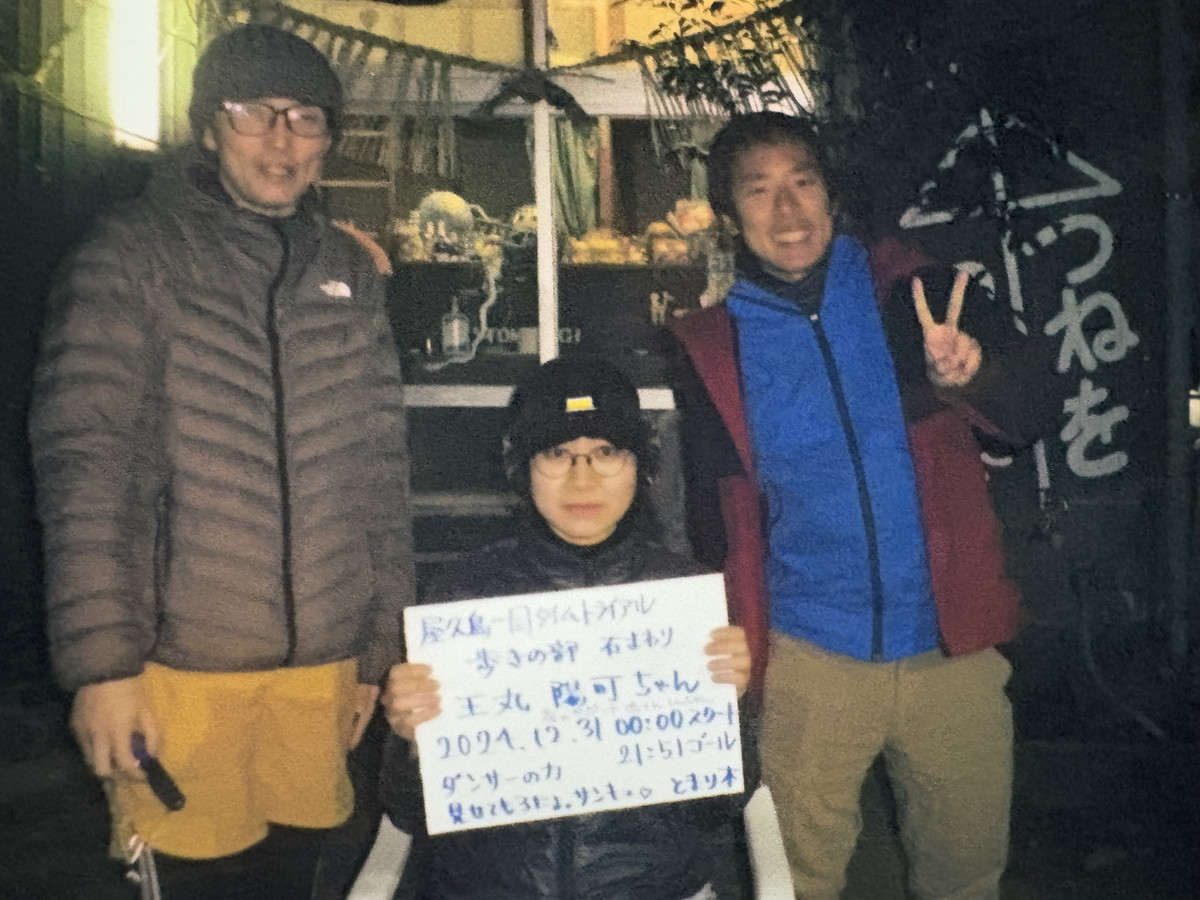 屋久島一周タイムトライアル
歩きの部 右まわり
王丸 陽可ちゃん
2024.12.31 00:00スタート
21:51ゴール
ダンサーの力
見せてもろたよ。サンキ。♡ とまり木
つねを